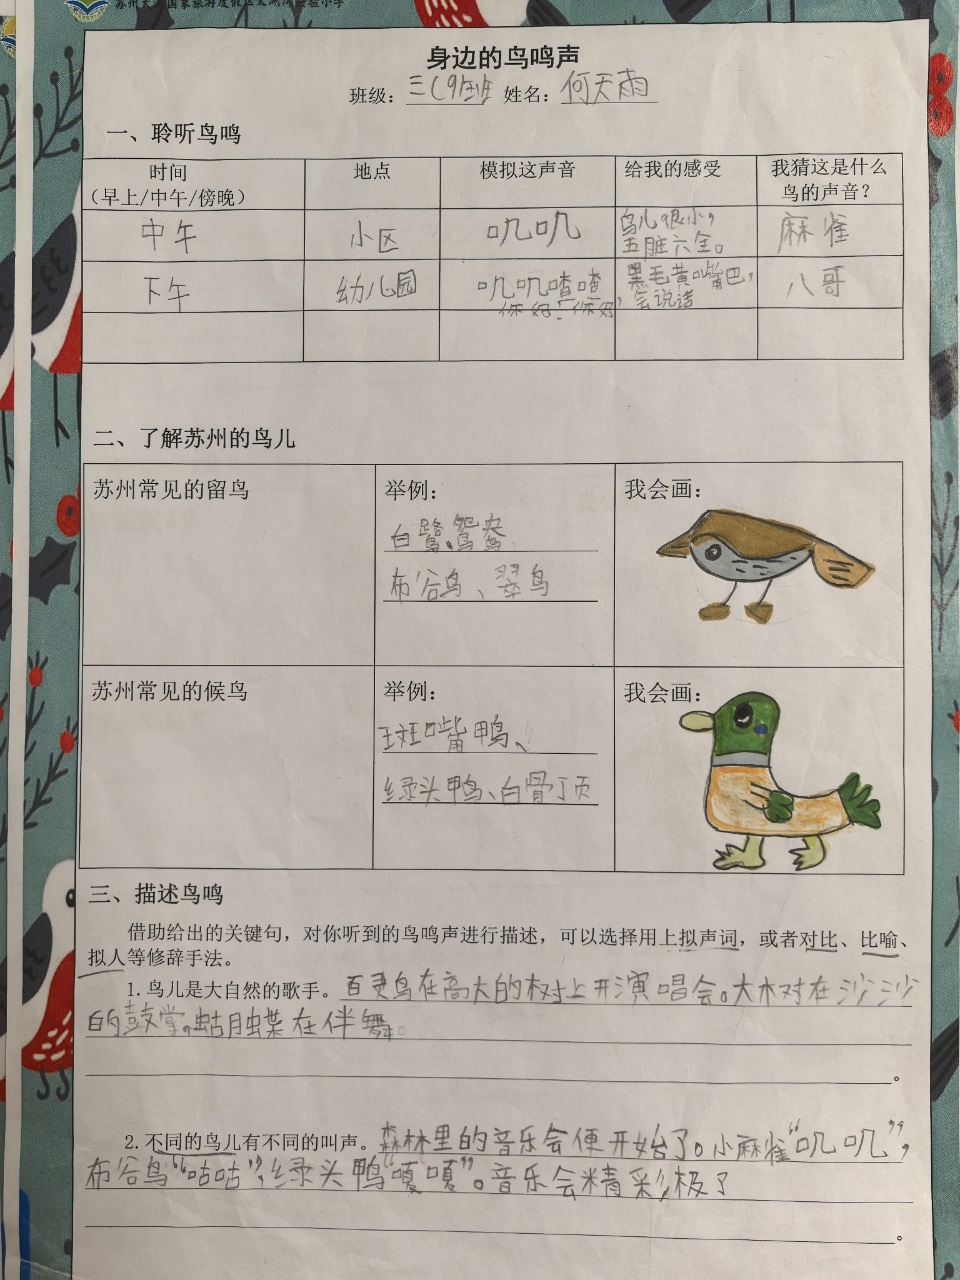 身边的鸟鸣声
班级：三(9)班 姓名：何天雨
一、聆听鸟鸣
时间
（早上/中午/傍晚）
地点
模拟这声音
给我的感受
我猜这是什么
鸟的声音？
中午
小区
叽叽
鸟儿很小，
五脏六全。
麻雀
下午
幼儿园
叽叽喳喳
你好！你好，
黑毛黄嘴巴，
会说话
八哥
二、了解苏州的鸟儿
苏州常见的留鸟
举例：
白鹭、鸳鸯、
布谷鸟、翠鸟
我会画：
苏州常见的候鸟
举例：
斑嘴鸭、
绿头鸭、白骨顶
我会画：
三、描述鸟鸣
借助给出的关键句，对你听到的鸟鸣声进行描述，可以选择用上拟声词，或者对比、比喻、
拟人等修辞手法。
1. 鸟儿是大自然的歌手。百灵鸟在高大的树上开演唱会。大树在沙沙
的鼓掌。蝴蝶在伴舞。
。
2. 不同的鸟儿有不同的叫声。森林里的音乐会便开始了。小麻雀“叽叽”，
布谷鸟“咕咕”，绿头鸭“嘎嘎”。音乐会精彩极了
。